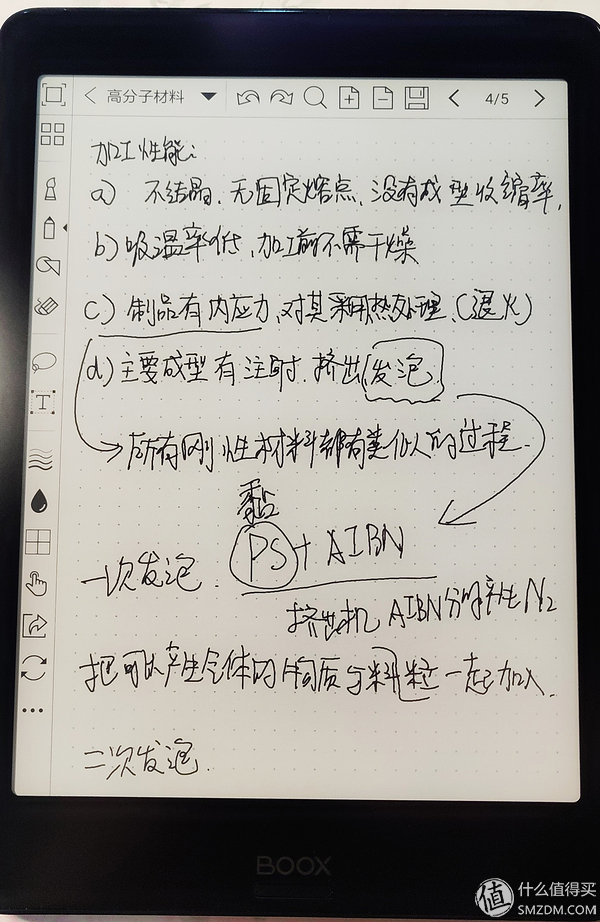 高分子材料
4/5
加工性能:
a) 不结晶,无固定熔点,没有成型收缩率,
b) 吸湿率低,加工前不需干燥
c) 制品有内应力,对其采用热处理,(退火)
d) 主要成型有注射.挤出,发泡.
所有刚性材料都有类似的过程.
PS+AIBN
一次发泡.
挤出机 AIBN分解产生N2
把可以产生气体的物质与料粒一起加入.
二次发泡.
BOOX
值 什么值得买
SMZDM.COM